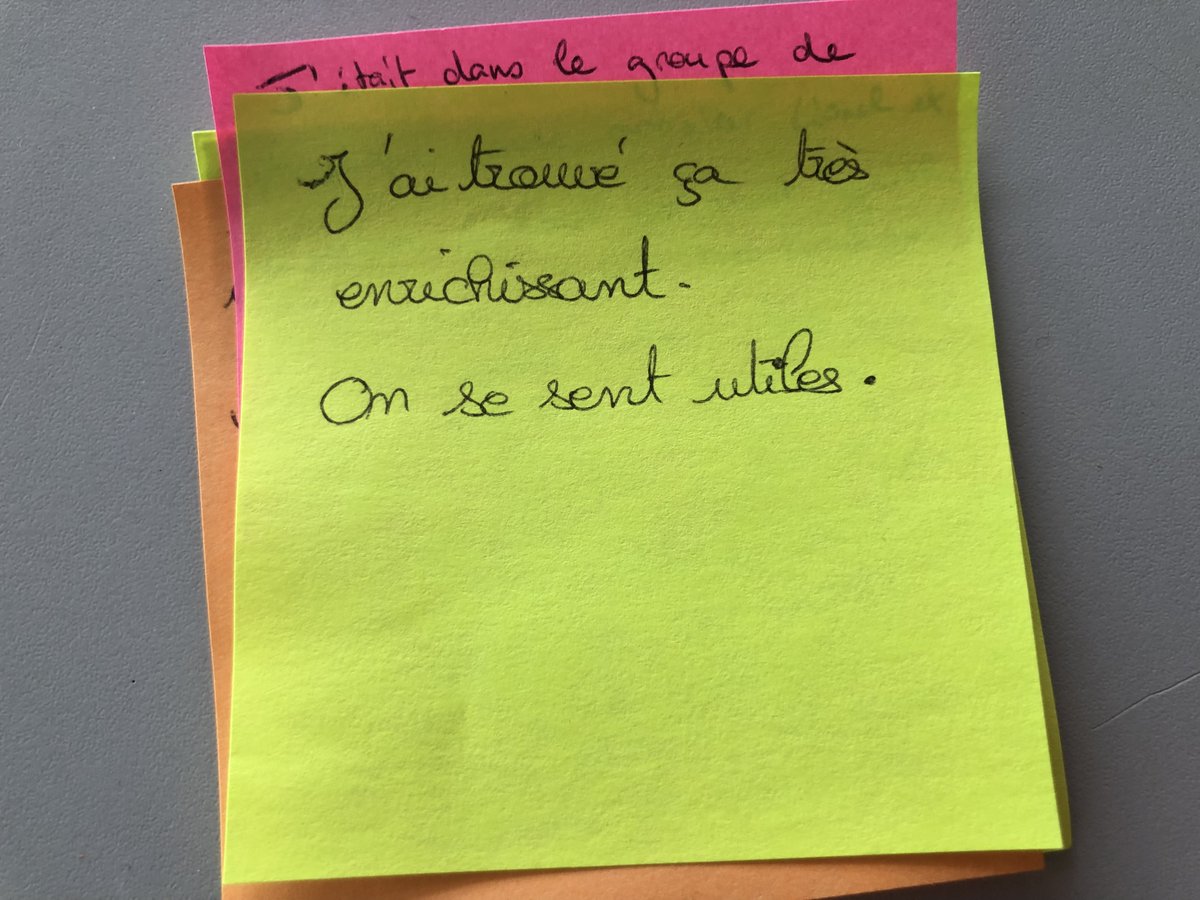 J'était dans le groupe de
J'ai trouvé ça très
enrichissant.
On se sent utiles.